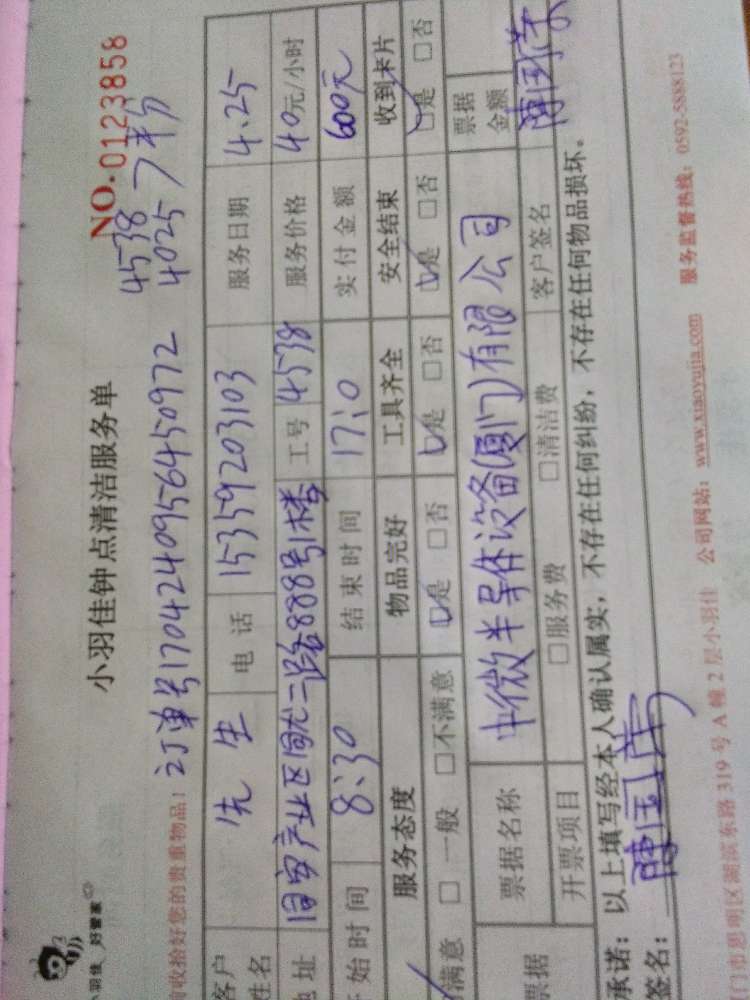 小羽佳 好管家
小羽佳钟点清洁服务单
NO.0123858
前收拾好您的贵重物品：订单号1704240956450972
4538
4025 7半分
客户姓名 先生 电话 15359203103 服务日期 4.25
地址 同安产业区同龙二路888号1楼 工号 4538 服务价格 40元/小时
开始时间 8:30 结束时间 17:0 实付金额 600元
服务态度 物品完好 工具齐全 安全结束 收到卡片
满意 □一般 □不满意 □是 □否 □是 □否 □是 □否 □是 □否
票据 票据名称 中微半导体设备(厦门)有限公司 票据金额
开票项目 □服务费 □清洁费 客户签名 陈国荣
承诺：以上填写经本人确认属实，不存在任何纠纷，不存在任何物品损坏。
签名：陈国荣
门市思明区湖滨东路319号A幢2层小羽佳 公司网站：www.xiaoyujia.com 服务监督热线：0592-5888123